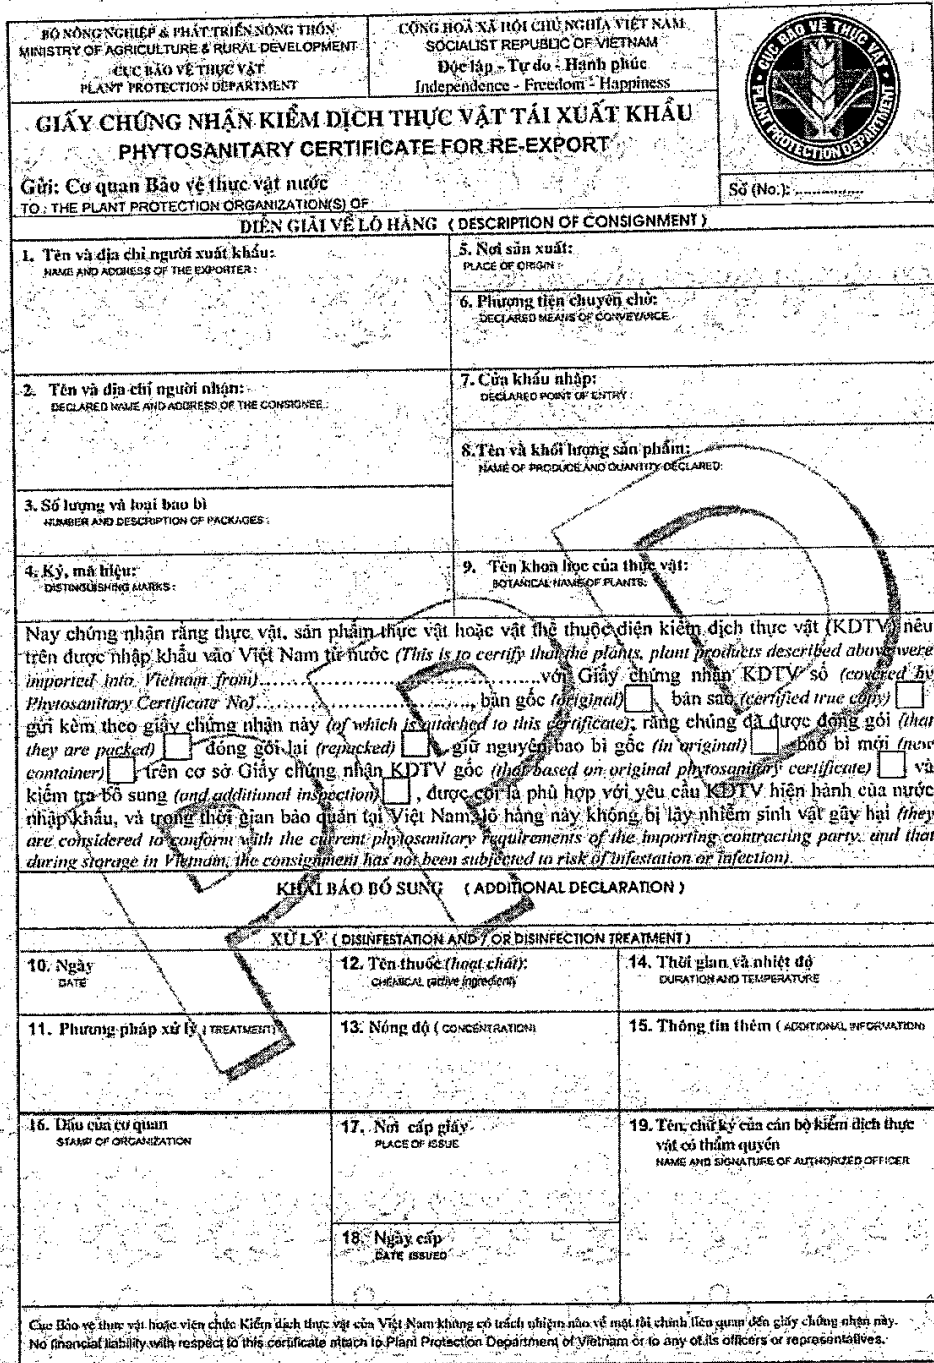 BỘ NÔNG NGHIỆP & PHÁT TRIỂN NÔNG THÔN
MINISTRY OF AGRICULTURE & RURAL DEVELOPMENT
CỤC BẢO VỆ THỰC VẬT
PLANT PROTECTION DEPARTMENT
CỘNG HOÀ XÃ HỘI CHỦ NGHĨA VIỆT NAM
SOCIALIST REPUBLIC OF VIETNAM
Độc lập - Tự do - Hạnh phúc
Independence - Freedom - Happiness
CỤC BẢO VỆ THỰC VẬT
PLANT PROTECTION DEPARTMENT
GIẤY CHỨNG NHẬN KIỂM DỊCH THỰC VẬT TÁI XUẤT KHẨU
PHYTOSANITARY CERTIFICATE FOR RE-EXPORT
Gửi: Cơ quan Bảo vệ thực vật nước
TO : THE PLANT PROTECTION ORGANIZATION(S) OF
Số (No.): ...............
DIỄN GIẢI VỀ LÔ HÀNG ( DESCRIPTION OF CONSIGNMENT )
1. Tên và địa chỉ người xuất khẩu:
NAME AND ADDRESS OF THE EXPORTER :
5. Nơi sản xuất:
PLACE OF ORIGIN :
6. Phương tiện chuyên chở:
DECLARED MEANS OF CONVEYANCE
2. Tên và địa chỉ người nhận:
DECLARED NAME AND ADDRESS OF THE CONSIGNEE :
7. Cửa khẩu nhập:
DECLARED POINT OF ENTRY :
8.Tên và khối lượng sản phẩm:
NAME OF PRODUCE AND QUANTITY DECLARED:
3. Số lượng và loại bao bì
NUMBER AND DESCRIPTION OF PACKAGES :
4. Ký, mã hiệu:
DISTINGUISHING MARKS :
9. Tên khoa học của thực vật:
BOTANICAL NAME OF PLANTS:
Nay chứng nhận rằng thực vật, sản phẩm thực vật hoặc vật thể thuộc diện kiểm dịch thực vật (KDTV) nêu
trên được nhập khẩu vào Việt Nam từ nước (This is to certify that the plants, plant products described above were
imported into Vietnam from)..................................................với Giấy chứng nhận KDTV số (covered by
Phytosanitary Certificate No)............................................, bản gốc (original) bản sao (certified true copy)
gửi kèm theo giấy chứng nhận này (of which is attached to this certificate); rằng chúng đã được đóng gói (that
they are packed) đóng gói lại (repacked) giữ nguyên bao bì gốc (in original) bao bì mới (new
container) trên cơ sở Giấy chứng nhận KDTV gốc (that based on original phytosanitary certificate) và
kiểm tra bổ sung (and additional inspection) , được coi là phù hợp với yêu cầu KDTV hiện hành của nước
nhập khẩu, và trong thời gian bảo quản tại Việt Nam, lô hàng này không bị lây nhiễm sinh vật gây hại (they
are considered to conform with the current phytosanitary requirements of the importing contracting party. and that
during storage in Vietnam, the consignment has not been subjected to risk of infestation or infection).
KHAI BÁO BỔ SUNG ( ADDITIONAL DECLARATION )
XỬ LÝ ( DISINFESTATION AND / OR DISINFECTION TREATMENT )
10. Ngày
DATE
12. Tên thuốc (hoạt chất):
CHEMICAL (active ingredient)
14. Thời gian và nhiệt độ
DURATION AND TEMPERATURE
11. Phương pháp xử lý ( TREATMENT)
13. Nồng độ ( CONCENTRATION)
15. Thông tin thêm ( ADDITIONAL INFORMATION)
16. Dấu của cơ quan
STAMP OF ORGANIZATION
17. Nơi cấp giấy
PLACE OF ISSUE
19. Tên, chữ ký của cán bộ kiểm dịch thực
vật có thẩm quyền
NAME AND SIGNATURE OF AUTHORIZED OFFICER
18. Ngày cấp
DATE ISSUED
Cục Bảo vệ thực vật hoặc viên chức Kiểm dịch thực vật của Việt Nam không có trách nhiệm nào về mặt tài chính liên quan đến giấy chứng nhận này.
No financial liability with respect to this certificate attach to Plant Protection Department of Vietnam or to any of its officers or representatives.